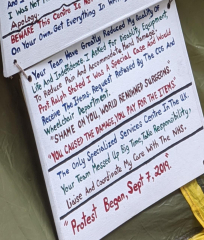 I Was Not
Apology.
BEWARE This Centre Is No
On Your Own. Get Everything In W
Your Team Have Greatly Reduced My Quality Of
Life And Independence. I Asked For Disability Equipment,
To Reduce Pain And Accommodate Hand Damage.
Prof. Ralph Stated I Was A Special Case And Would
Receive The Items. Request Refused By The CCG And
Wheelchair Department.
"SHAME ON YOU, WORLD RENOWNED SURGEONS.
YOU CAUSED THE DAMAGE, YOU PAY FOR THE ITEMS"
The Only Specialized Services Centre In The U.K.
Your Team Messed Up Big Time, Take Responsibility.
Liaise And Coordinate My Care With The NHS.
"Protest Began, Sept 7, 2019."